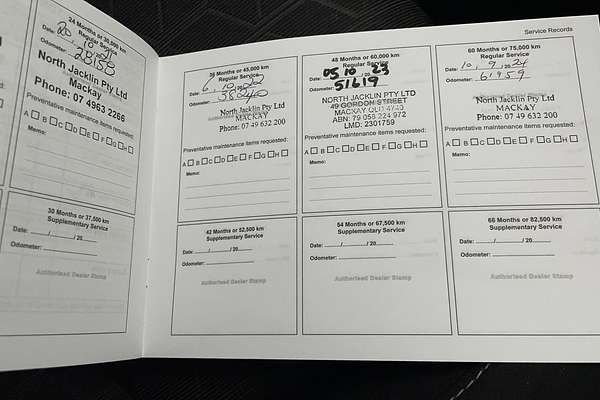 Service Records
24 Months or 30,000 km
Regular Service
Date: 20 / 10 / 2021
Odometer:
North Jacklin Pty Ltd
Mackay
Phone: 07 4963 2266
Preventative maintenance items requested:
A B C D E F G H
Memo:
30 Months or 37,500 km
Supplementary Service
Date: / / 20
Odometer:
Authorised Dealer Stamp
36 Months or 45,000 km
Regular Service
Date: 6 / 10 / 2022
Odometer: 38240
North Jacklin Pty Ltd
MACKAY
Phone: 07 49 632 200
Preventative maintenance items requested:
A B C D E F G H
Memo:
42 Months or 52,500 km
Supplementary Service
Date: / / 20
Odometer:
Authorised Dealer Stamp
48 Months or 60,000 km
Regular Service
Date: 05 / 10 / 2023
Odometer: 51619
NORTH JACKLIN PTY LTD
49 GORDON STREET
MACKAY QLD 4740
ABN: 79 056 224 972
LMD: 2301759
Preventative maintenance items requested:
A B C D E F G H
Memo:
54 Months or 67,500 km
Supplementary Service
Date: / / 20
Odometer:
Authorised Dealer Stamp
60 Months or 75,000 km
Regular Service
Date: 10 / 9 / 2024
Odometer: 61959
North Jacklin Pty Ltd
MACKAY
Phone: 07 49 632 200
Preventative maintenance items requested:
A B C D E F G H
Memo:
66 Months or 82,500 km
Supplementary Service
Date: / / 20
Odometer:
Authorised Dealer Stamp